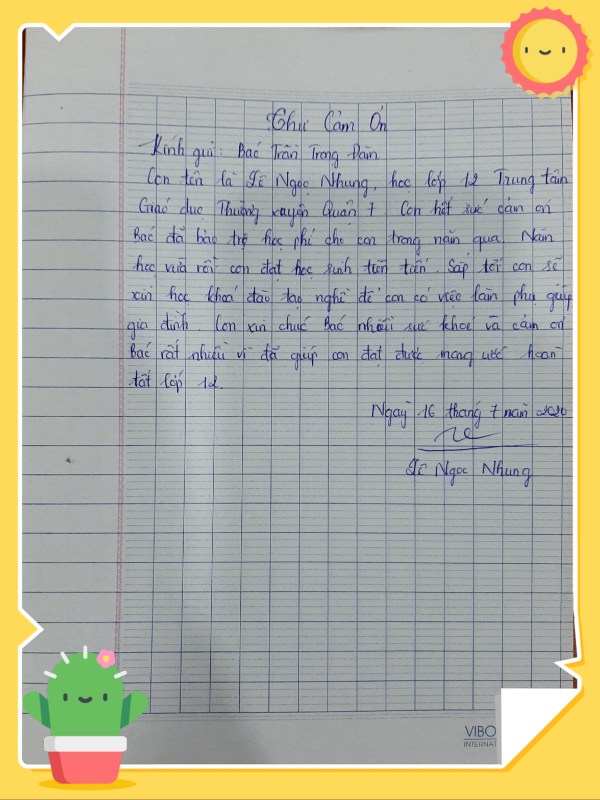 Thư Cảm Ơn
Kính gửi: Bác Trần Trọng Đàm
Con tên là Lê Ngọc Nhung, học lớp 12 Trung tâm
Giáo dục Thường xuyên Quận 7. Con hết sức cảm ơn
Bác đã bảo trợ học phí cho con trong năm qua. Năm
học vừa rồi con đạt học sinh tiên tiến. Sắp tới con sẽ
xin học khoá đào tạo nghề để con có việc làm phụ giúp
gia đình. Con xin chúc Bác nhiều sức khoẻ và cảm ơn
Bác rất nhiều vì đã giúp con đạt được mong ước hoàn
tất lớp 12.
Ngày 16 tháng 7 năm 2020
Lê Ngọc Nhung
VIBO
INTERNAT